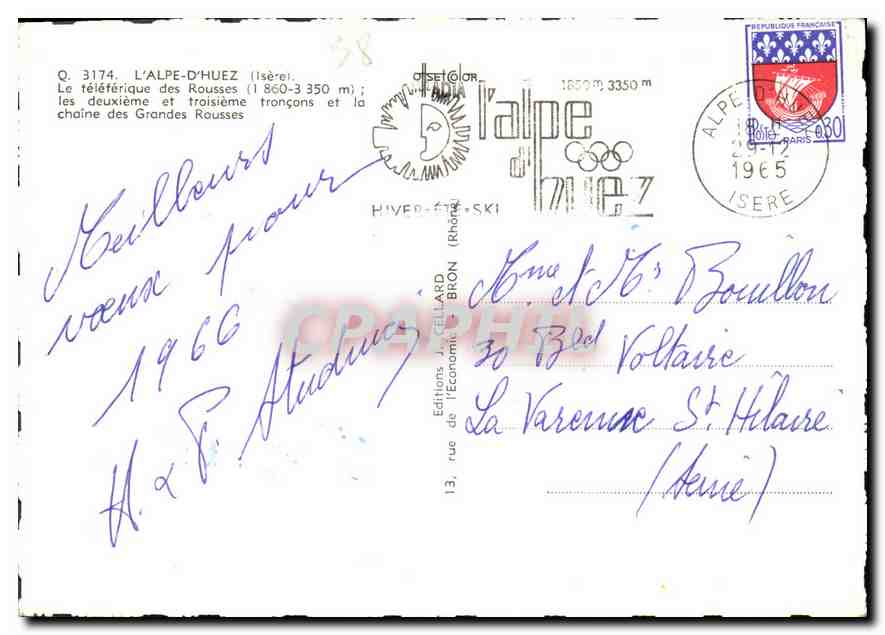 Q. 3174. L'ALPE-D'HUEZ (Isère).
Le téléférique des Rousses (1 860-3 350 m) ;
les deuxième et troisième tronçons et la
chaîne des Grandes Rousses
38
OFFSETCOLOR
1850 m 3350 m
l'alpe
d'
huez
HIVER-ÉTÉ-SKI
ALPE D'HUEZ
18 H
29-12
1965
ISERE
REPUBLIQUE FRANÇAISE
POSTES
0,30
PARIS
Meilleurs
vœux pour
1966
H. & P.
Editions J. CELLARD
13, rue de l'Economie - BRON (Rhône)
CPAPHIL
Mme et Mr Bouillon
30 Bled Voltaire
La Varenne St Hilaire
(Seine)